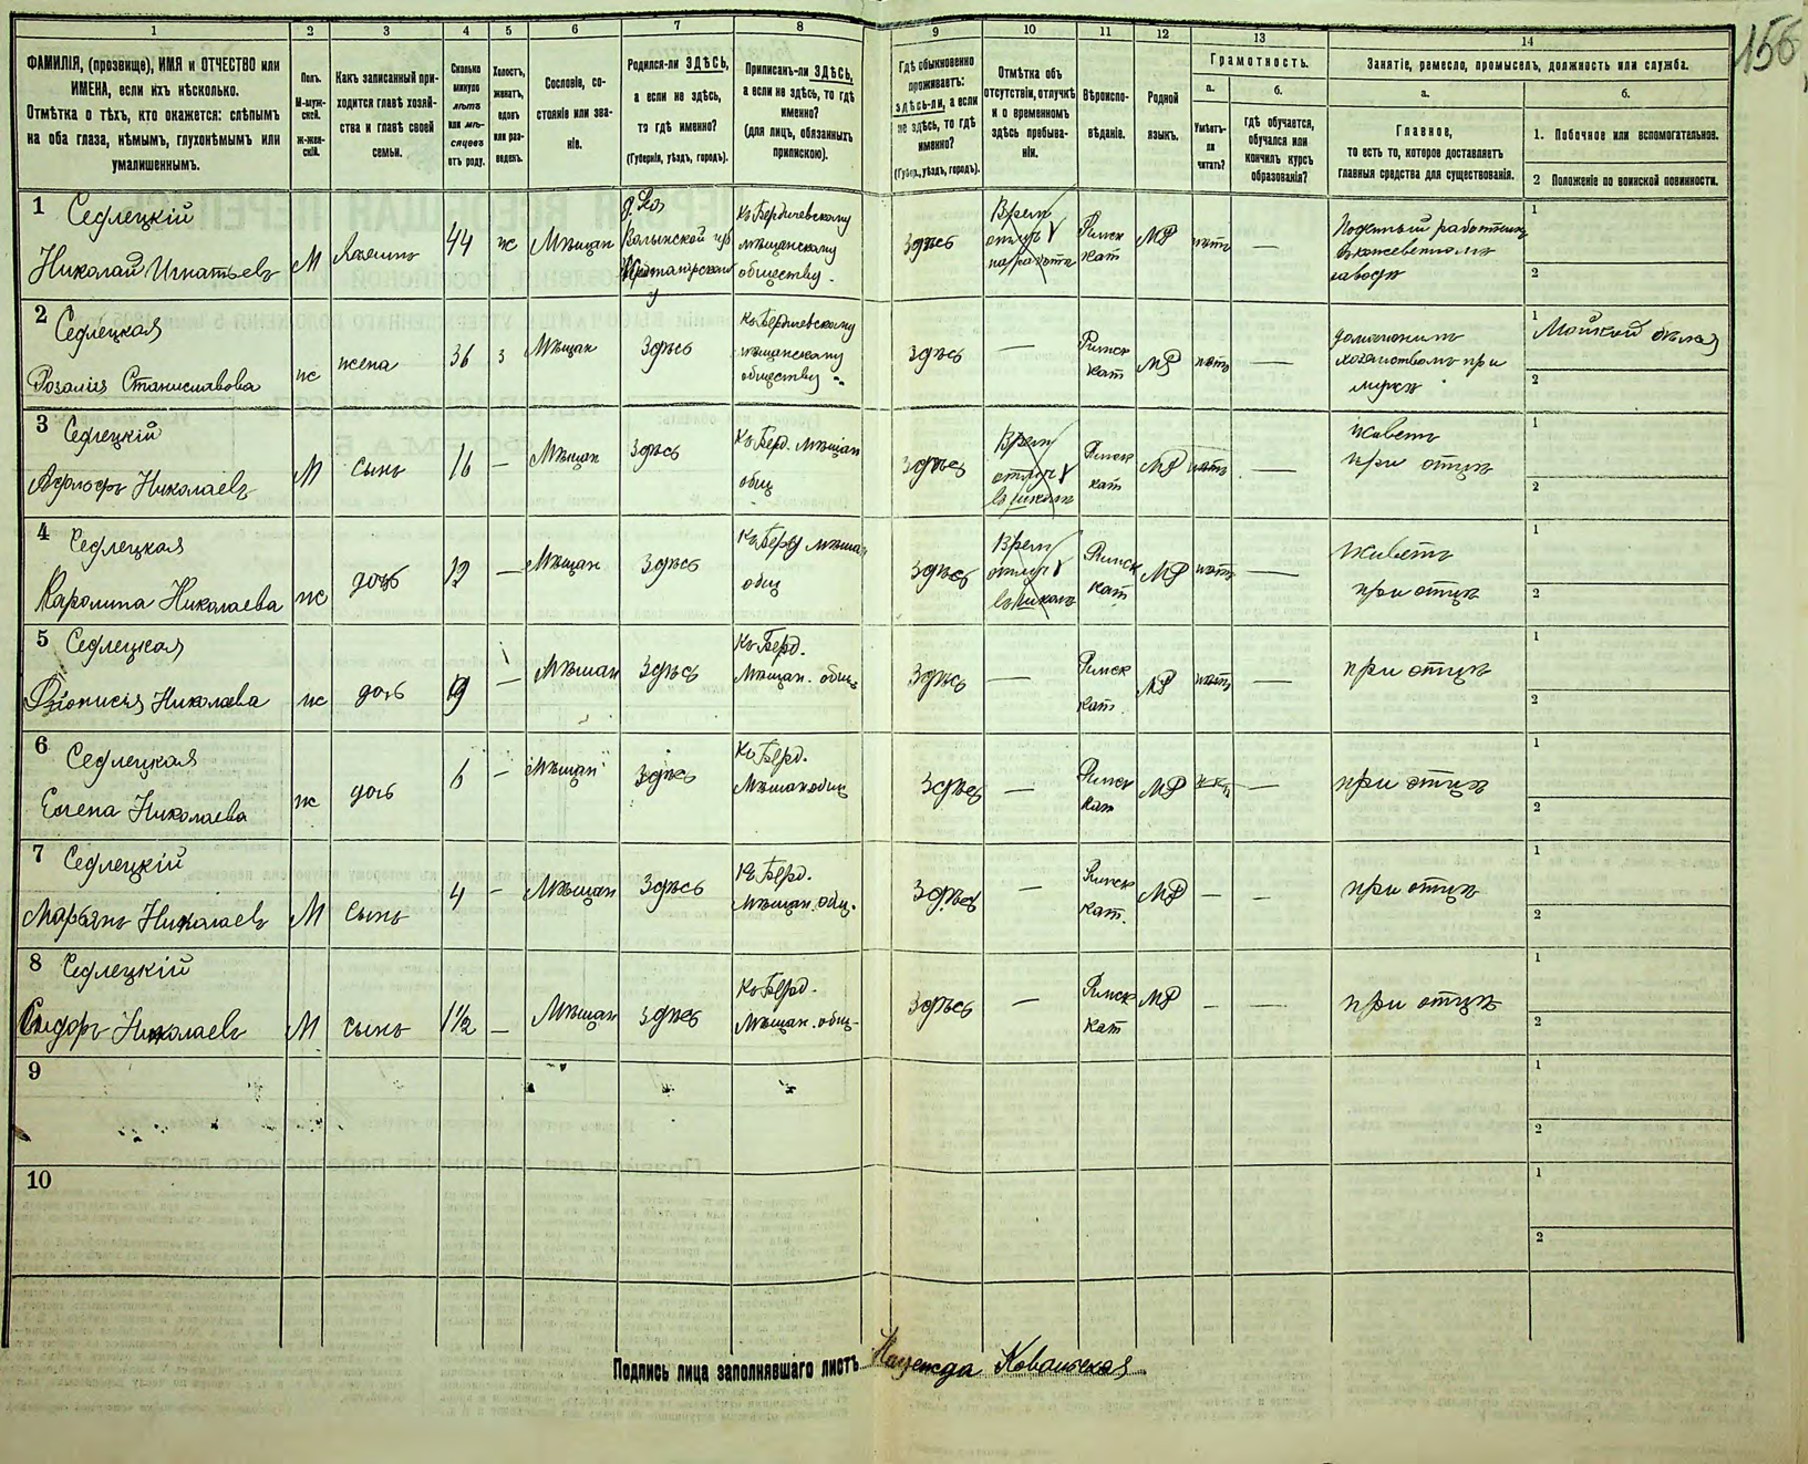 156
1 2 3 4 5 6 7 8 9 10 11 12 13 14
ФАМИЛІЯ, (прозвище), ИМЯ и ОТЧЕСТВО или
ИМЕНА, если ихъ нѣсколько.
Отмѣтка о тѣхъ, кто окажется: слѣпымъ
на оба глаза, нѣмымъ, глухонѣмымъ или
умалишеннымъ.
Полъ.
М-муж-
ской.
ж-жен-
скій.
Какъ записанный при-
ходится главѣ хозяй-
ства и главѣ своей
семьи.
Сколько
минуло
лѣтъ
или мѣ-
сяцевъ
отъ роду.
Холостъ,
женатъ,
вдовъ
или раз-
веденъ.
Сословіе, со-
стояніе или зва-
ніе.
Родился-ли ЗДѢСЬ,
а если не здѣсь,
то гдѣ именно?
(Губернія, уѣздъ, городъ).
Приписанъ-ли ЗДѢСЬ,
а если не здѣсь, то гдѣ
именно?
(для лицъ, обязанныхъ
припискою).
Гдѣ обыкновенно
проживаетъ:
здѣсь-ли, а если
не здѣсь, то гдѣ
именно?
(Губер., уѣздъ, городъ).
Отмѣтка объ
отсутствіи, отлучкѣ
и о временномъ
здѣсь пребыва-
ніи.
Вѣроиспо-
вѣданіе.
Родной
языкъ.
Грамотность.
а.
Умѣетъ-
ли
читать?
б.
Гдѣ обучается,
обучался или
кончилъ курсъ
образованія?
Занятіе, ремесло, промыселъ, должность или служба.
а.
Главное,
то есть то, которое доставляетъ
главныя средства для существованія.
б.
1. Побочное или вспомогательное.
2 Положеніе по воинской повинности.
1 Седлецкій
Николай Игнатьевъ
М
44
ж
Мѣщан
Волынской
Къ Бердичевскому
мѣщанскому
обществу.
Здѣсь
Врем
Римск
кат
нѣтъ
—
работник
заводѣ
1
2
2 Седлецкая
Розалія Станиславова
ж
жена
36
з
Мѣщан
Здѣсь
Къ Бердичевскому
мѣщанскому
обществу
здѣсь
—
Римск
кат
нѣтъ
—
хозяйствомъ при
мужѣ
1
2
3 Седлецкій
Адольфъ Николаевъ
М
сынъ
16
—
Мѣщан
здѣсь
Къ Берд. Мѣщан
общ
здѣсь
Врем
Римск
кат
нѣтъ
—
Живетъ
при отцѣ
1
2
4 Седлецкая
Каролина Николаева
ж
дочь
12
—
Мѣщан
Здѣсь
Къ Берд мѣщан
общ
Здѣсь
Врем
Римск
кат
нѣтъ
—
Живетъ
при отцѣ
1
2
5 Седлецкая
Діонисія Николаева
ж
дочь
9
—
Мѣщан
Здѣсь
Къ Берд.
Мѣщан. общ
Здѣсь
—
Римск
кат.
нѣтъ
—
при отцѣ
1
2
6 Седлецкая
Елена Николаева
ж
дочь
6
—
Мѣщан
Здѣсь
Къ Берд.
Мѣщан общ
Здѣсь
—
Римск
кат
—
при отцѣ
1
2
7 Седлецкій
Марьянъ Николаевъ
М
сынъ
4
-
Мѣщан
Здѣсь
Къ Берд.
Мѣщан. общ.
Здѣсь
—
Римск
кат.
—
—
при отцѣ
1
2
8 Седлецкій
Сидоръ Николаевъ
М
сынъ
1½
—
Мѣщан
Здѣсь
Къ Берд.
Мѣщан. общ.
Здѣсь
—
Римск
кат
—
—
при отцѣ
1
2
9
1
2
10
1
2
Подпись лица заполнявшаго листъ Надежда Ковальская